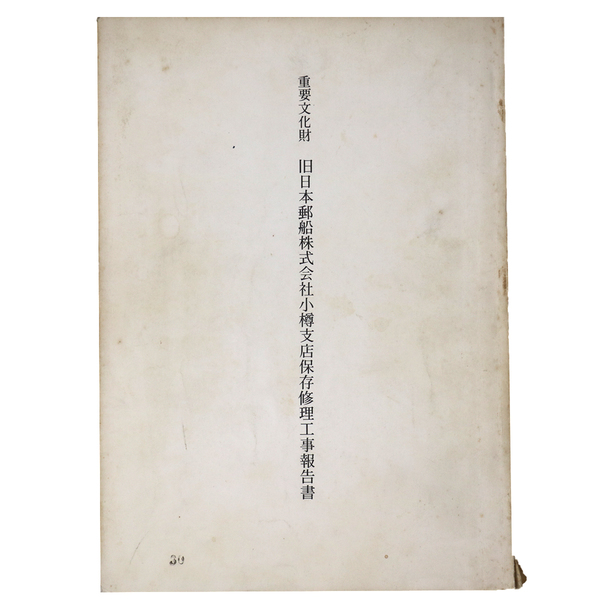 重要文化財 旧日本郵船株式会社小樽支店保存修理工事報告書
30